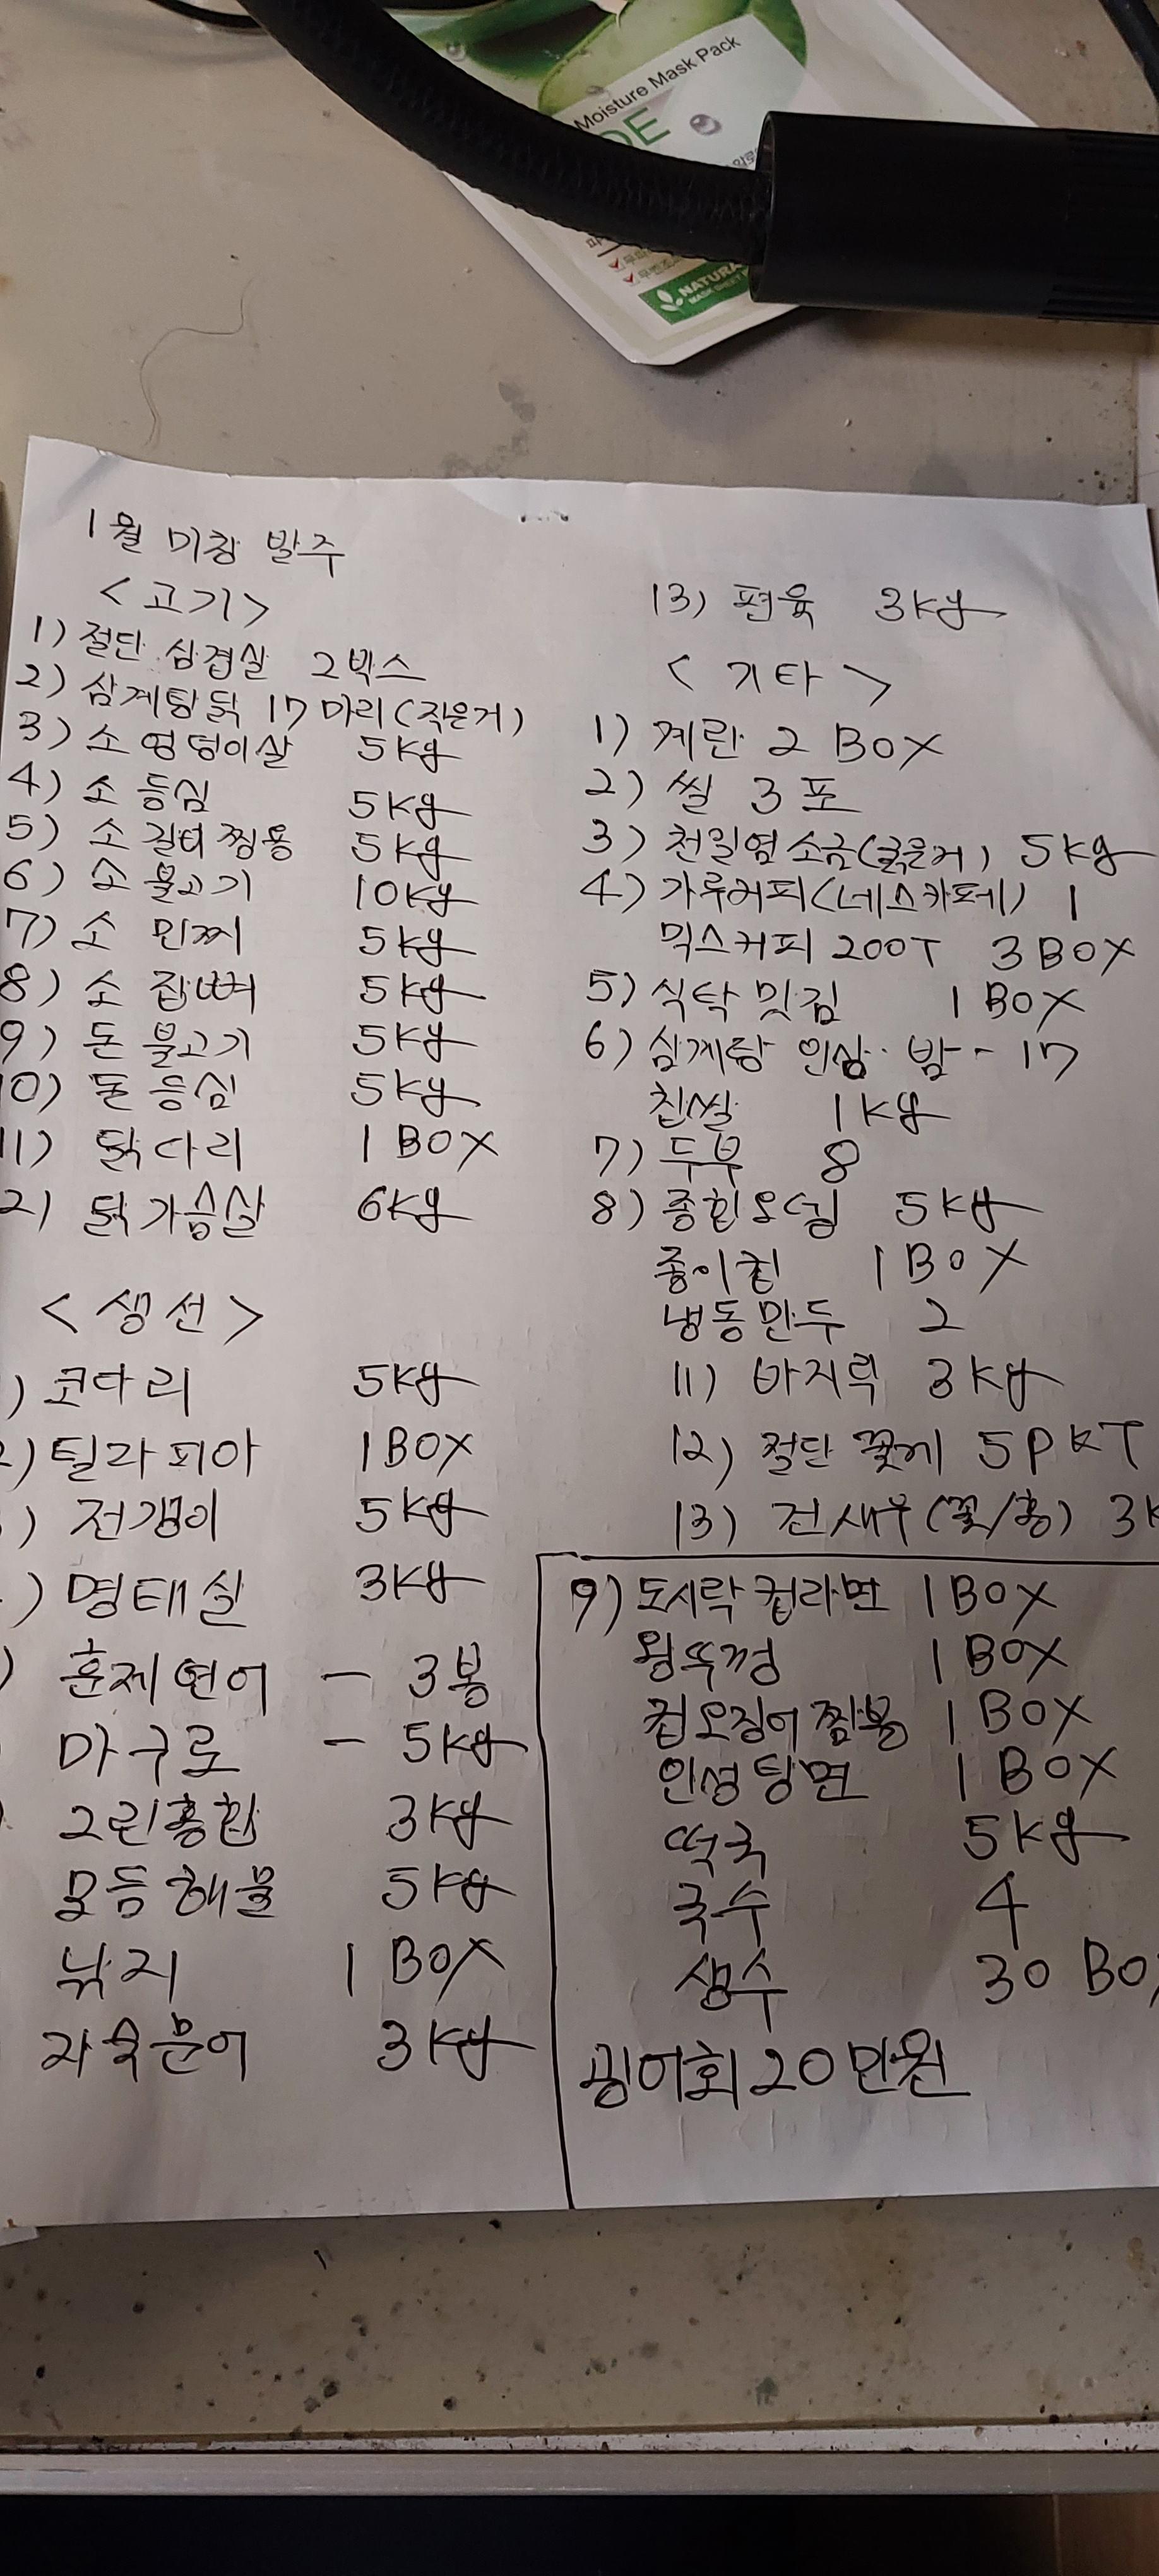 Moisture Mask Pack
NATURA
MASK SHEET
1월 미창 발주
<고기>
1) 절단 삼겹살 2박스
2) 삼계탕닭 17마리(작은거)
3) 소 엉덩이살 5kg
4) 소 등심 5kg
5) 소 갈비 찜용 5kg
6) 소 불고기 10kg
7) 소 민찌 5kg
8) 소 잡뼈 5kg
9) 돈 불고기 5kg
10) 돈 등심 5kg
11) 닭다리 1 BOX
2) 닭가슴살 6kg
<생선>
) 코다리 5kg
2) 틸라피아 1 BOX
) 전갱이 5kg
) 명태살 3kg
) 훈제연어 - 3봉
마구로 - 5kg
그린홍합 3kg
모듬해물 5kg
낚지 1 BOX
자숙문어 3kg
13) 편육 3kg
<기타>
1) 계란 2 BOX
2) 쌀 3포
3) 천일염소금(굵은거) 5kg
4) 가루커피(네스카페) 1
믹스커피 200T 3 BOX
5) 식탁 맛김 1 BOX
6) 삼계탕 인삼·밤 - 17
찹쌀 1kg
7) 두부 8
8) 종합오뎅 5kg
종이컵 1 BOX
냉동만두 2
11) 바지락 3kg
12) 절단 꽃게 5PKT
13) 전새우(꽃/홍) 3K
9) 도시락 컵라면 1 BOX
왕뚜껑 1 BOX
컵오징어짬뽕 1 BOX
안성탕면 1 BOX
떡국 5kg
국수 4
생수 30 BOX
광어회 20만원